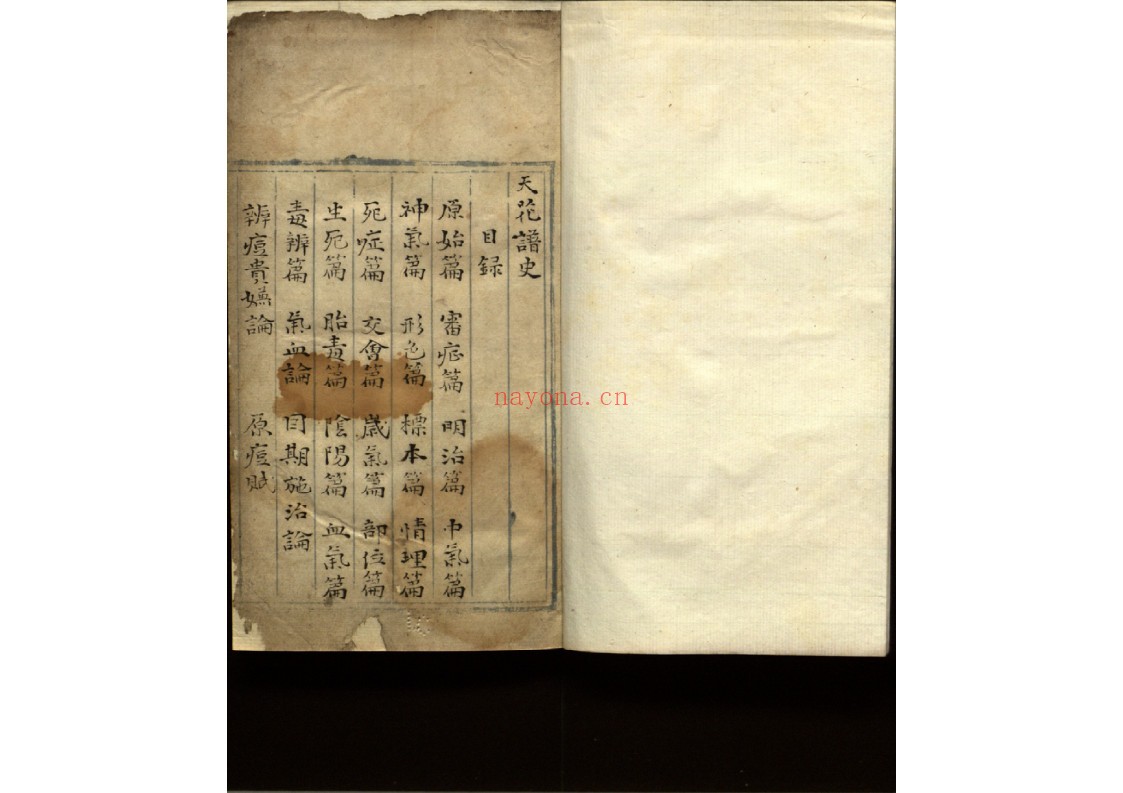 天花譜史
目録
原始篇 審症篇 明治篇 中氣篇
神氣篇 形色篇 標本篇 情理篇
死症篇 交會篇 歲氣篇 部位篇
生死篇 胎毒篇 陰陽篇 血氣篇
毒辨篇 氣血論 日期施治論
辨痘貴嫌論 原痘賦
nayona.cn